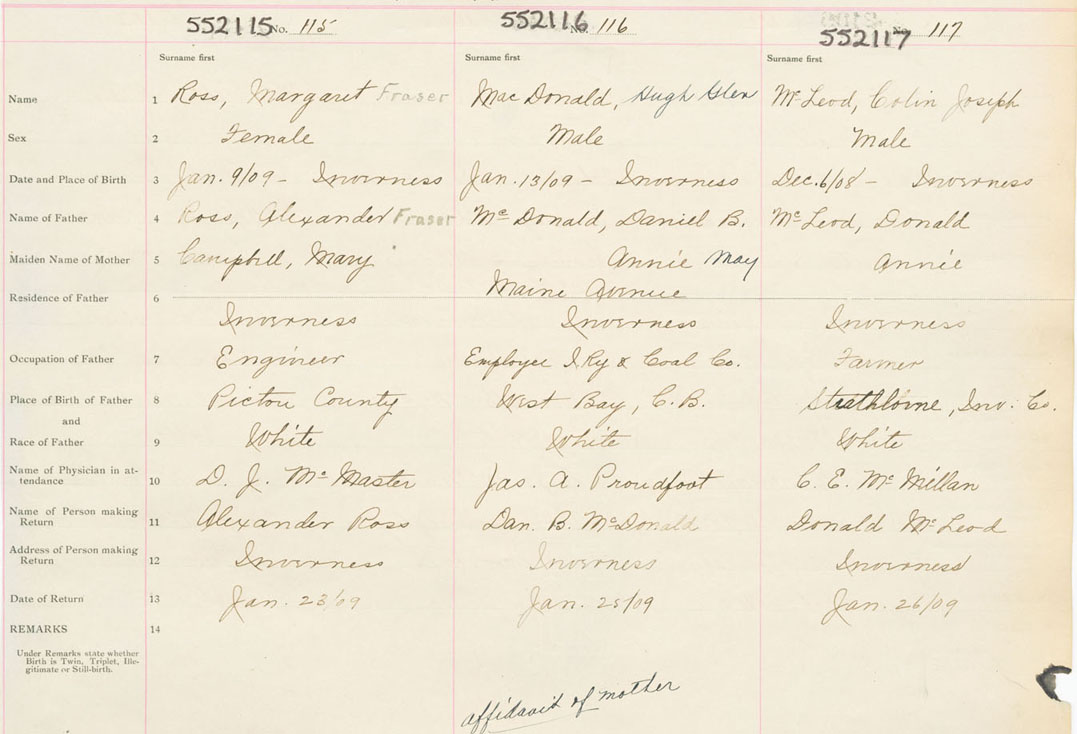 552115 No. 115 552116 No. 116 552117 No. 117
Surname first Surname first Surname first
Name 1 Ross, Margaret Fraser Mac Donald, Hugh Glen Mc Leod, Colin Joseph
Sex 2 Female Male Male
Date and Place of Birth 3 Jan. 9/09 - Inverness Jan. 13/09 - Inverness Dec. 6/08 - Inverness
Name of Father 4 Ross, Alexander Fraser Mc Donald, Daniel B. Mc Leod, Donald
Maiden Name of Mother 5 Campbell, Mary Annie May Annie
Maine Avenue
Residence of Father 6
Inverness Inverness Inverness
Occupation of Father 7 Engineer Employee I. Ry & Coal Co. Farmer
Place of Birth of Father 8 Pictou County West Bay, C.B. Strathlorne, Inv. Co.
and
Race of Father 9 White White White
Name of Physician in at-
tendance 10 D. J. Mc Master Jas. A. Proudfoot C. E. Mc Millan
Name of Person making
Return 11 Alexander Ross Dan. B. Mc Donald Donald Mc Leod
Address of Person making
Return 12 Inverness Inverness Inverness
Date of Return 13 Jan. 23/09 Jan. 25/09 Jan. 26/09
REMARKS 14
Under Remarks state whether
Birth is Twin, Triplet, Ille-
gitimate or Still-birth.
affidavit of mother